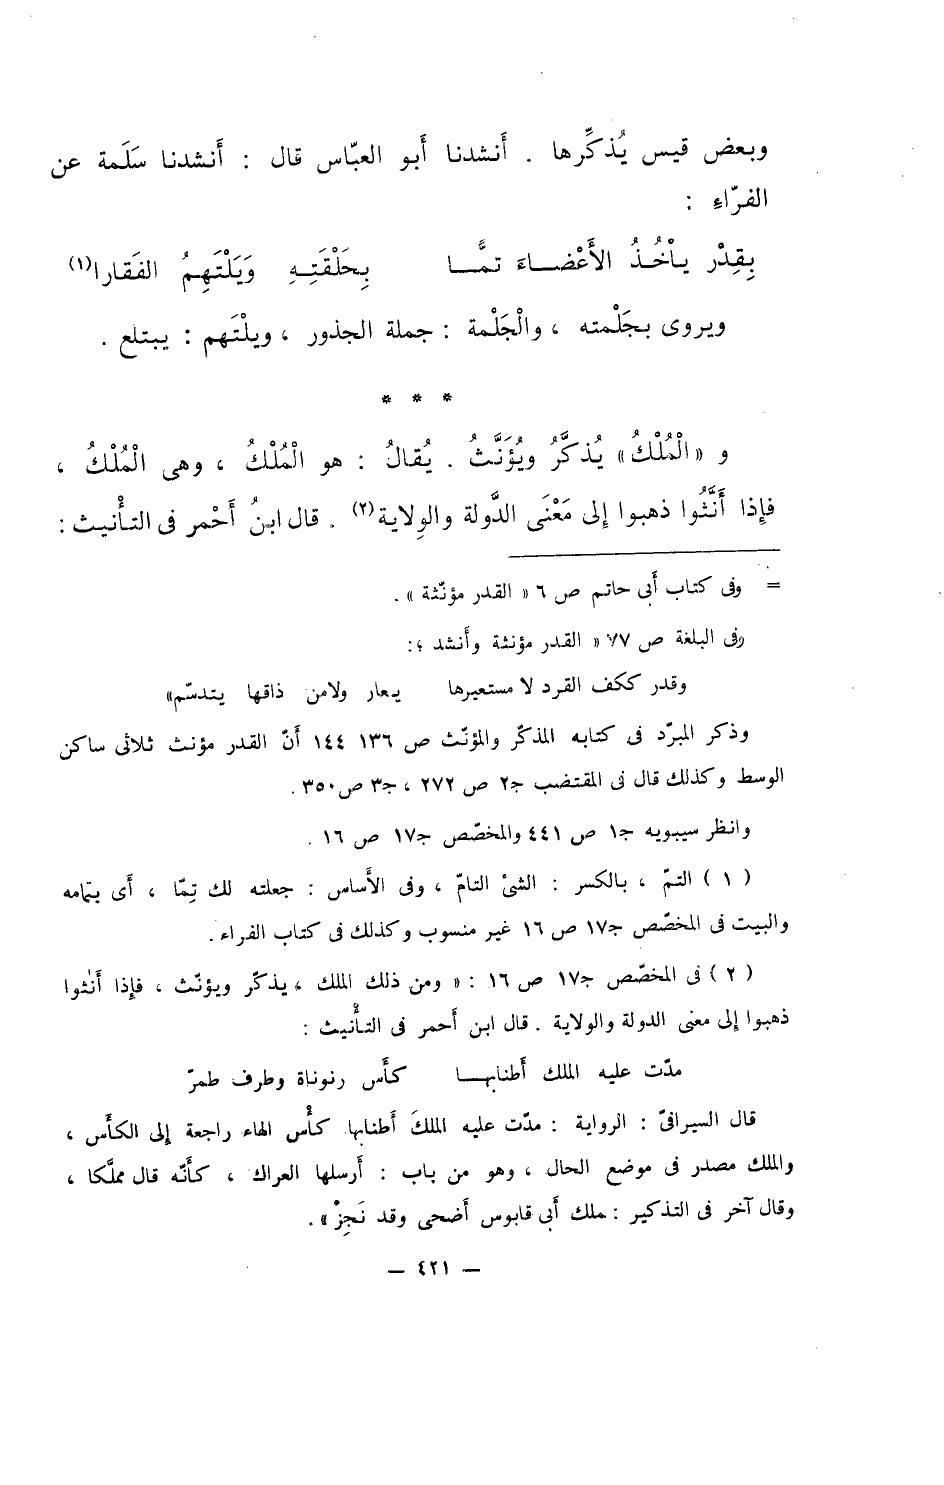 وبعض قيس يُذكِّرها . أَنشدنا أَبو العبّاس قال : أَنشدنا سَلَمة عن
الفرّاءِ :
بِقِدْر يأْخُذُ الأَعْضاءَ تمًّا بِحَلْقَتِهِ وَيَلْتَهِمُ الفَقارا(١)
ويروى بجَلْمته ، والْجَلْمة : جملة الجذور ، ويلْتَهم : يبتلع .
* * *
و «الْمُلْكُ» يُذكَّرُ ويُؤَنَّثُ . يُقالُ : هو الْمُلْكُ ، وهى الْمُلْكُ ،
فإِذا أَنَّثُوا ذهبوا إِلى مَعْنَى الدَّولة والوِلاية(٢) . قال ابنُ أَحْمر فى التأْنيث :
= وفى كتاب أَبى حاتم ص ٦ « القدر مؤنّثة » .
وفى البلغة ص ٧٧ « القدر مؤنثة وأَنشد :
وقدر ككف القرد لا مستعيرها يعار ولامن ذاقها يتدسّم»
وذكر المبرّد فى كتابه المذكّر والمؤنّث ص ١٣٦ ١٤٤ أَنّ القدر مؤنث ثلاثى ساكن
الوسط وكذلك قال فى المقتضب ج٢ ص ٢٧٢ ، ج٣ ص٣٥٠ .
وانظر سيبويه ج١ ص ٤٤١ والمخصّص ج١٧ ص ١٦ .
( ١ ) التمّ ، بالكسر : الشئ التامّ ، وفى الأَساس : جعلته لك تِمّا ، أَى بتمامه
والبيت فى المخصّص ج١٧ ص ١٦ غير منسوب وكذلك فى كتاب الفراء .
( ٢ ) فى المخصّص ج١٧ ص ١٦ : « ومن ذلك الملك ، يذكّر ويؤنّث ، فإِذا أَنثوا
ذهبوا إِلى معنى الدولة والولاية . قال ابن أَحمر فى التأْنيث :
مدّت عليه الملك أَطنابها كأَس رنوناة وطرف طمرّ
قال السيرافىّ : الرواية : مدّت عليه الملكَ أَطنابها كأْس الهاء راجعة إِلى الكأَس ،
والملك مصدر فى موضع الحال ، وهو من باب : أَرسلها العراك ، كأَنّه قال مملَّكا ،
وقال آخر فى التذكير : ملك أَبى قابوس أَضحى وقد نَجِزْ » .
— ٤٢١ —